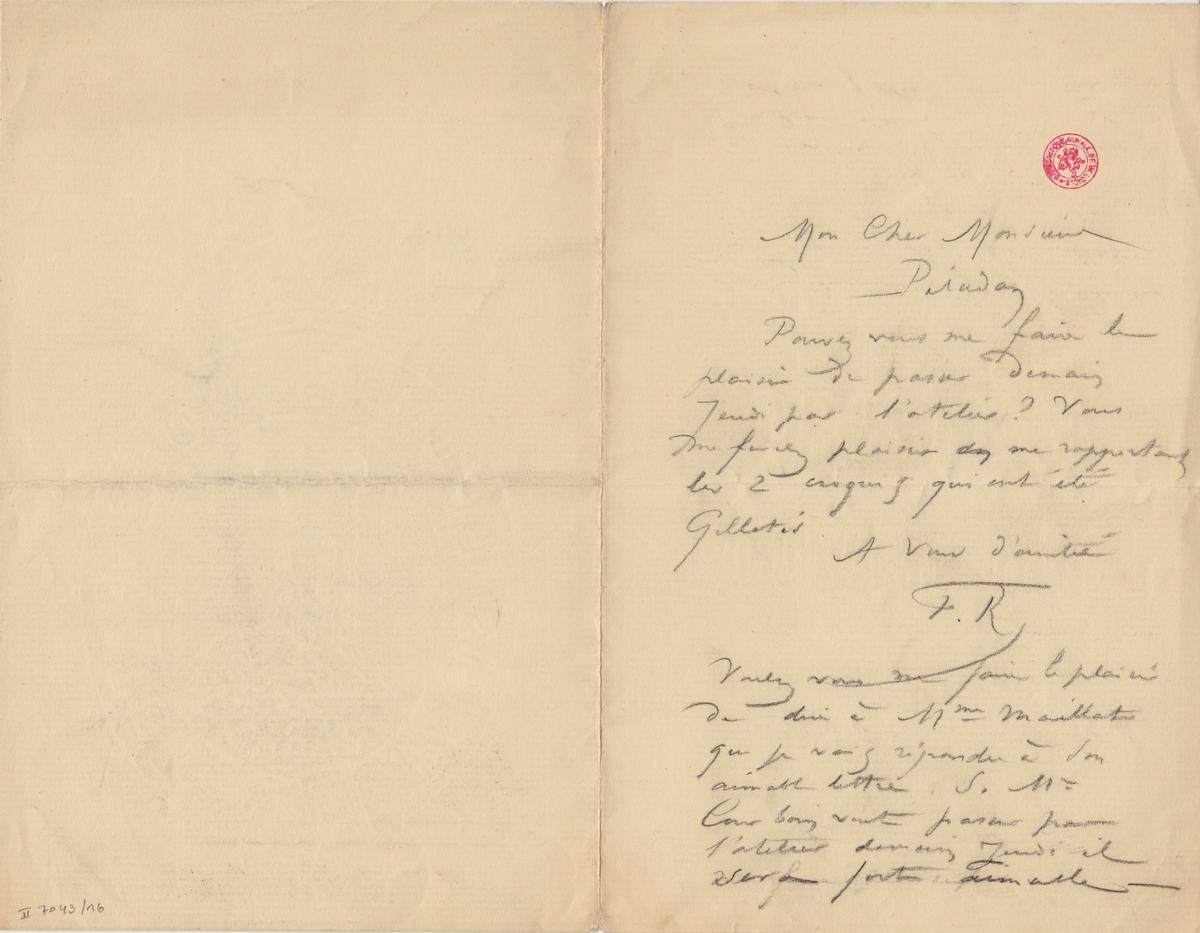 Mon Cher Monsieur
Péladan
Pouvez vous me faire le
plaisir de passer demain
Jeudi par l'atelier? Vous
me ferez plaisir en me rapportant
les 2 croquis qui ont été
Gillotés.
A Vous d'amitié
F. R
Voulez vous me faire le plaisir
de dire à Mme
que je vais répondre à son
aimable lettre. Si Mr
veut passer par
l'atelier demain Jeudi il
sera fort aimable
II 7043/16